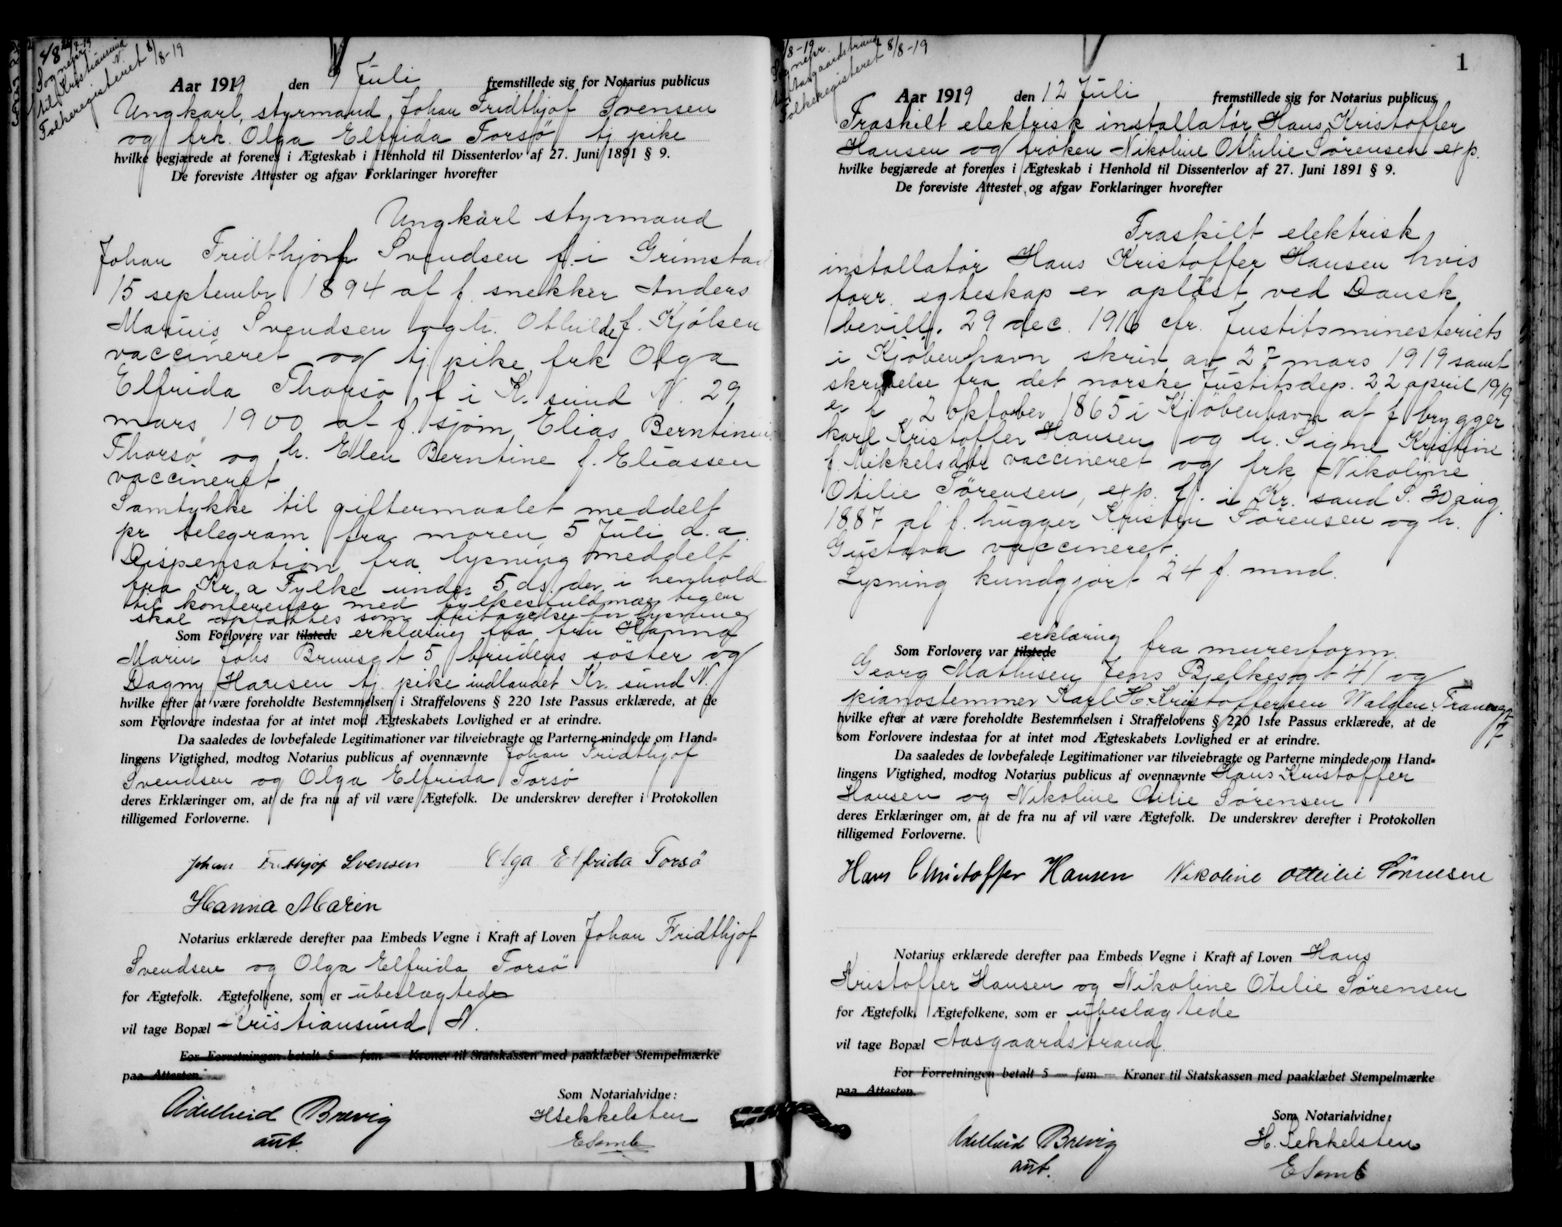 4/8-19
Sognepr.
til Kristiansund N
Folkeregisteret 8/8-19
Aar 1919 den 9 Juli fremstillede sig for Notarius publicus
Ungkarl, styrmand Johan Fridthjof Svensen
og frk. Olga Elfrida Torsø tj. pike
hvilke begjærede at forenes i Ægteskab i Henhold til Dissenterlov af 27. Juni 1891 § 9.
De foreviste Attester og afgav Forklaringer hvorefter
Ungkarl styrmand
Johan Fridthjorf Svendsen f. i Grimstad
15 septembr 1894 af f. snekker Anders
Marius Svendsen og h. Othilde f. Kjølsen
vaccineret og tj pike, frk Olga
Elfrida Thorsø f i K. sund N. 29
mars 1900 af f. sjøm Elias Berntinius
Thorsø og h. Elen Berntine f. Eliassen
vaccineret
Samtykke til giftermaalet meddelt
pr telegram fra moren 5 Juli d. a.
Dispensation fra lysning meddelt
fra Kr. a Fylke under 5 ds, der i henhold
til konferense med fylkesfuldmægtigen
skal opfattes som fritagelse for lysning
Som Forlovere var tilstede erklæring fra fru Hanna
Marin Johs Brunsgt 5 brudens søster og
Dagny Hansen tj. pike indlandet Kr. sund N.
hvilke efter at være foreholdte Bestemmelsen i Straffelovens § 220 1ste Passus erklærede, at de
som Forlovere indestaa for at intet mod Ægteskabets Lovlighed er at erindre.
Da saaledes de lovbefalede Legitimationer var tilveiebragte og Parterne mindede om Hand-
lingens Vigtighed, modtog Notarius publicus af ovennævnte Johan Fridthjof
Svendsen og Olga Elfrida Torsø
deres Erklæringer om, at de fra nu af vil være Ægtefolk. De underskrev derefter i Protokollen
tilligemed Forloverne.
Johan Fridthjof Svensen Olga Elfrida Torsø
Hanna Marin
Notarius erklærede derefter paa Embeds Vegne i Kraft af Loven Johan Fridthjof
Svendsen og Olga Elfrida Torsø
for Ægtefolk. Ægtefolkene, som er ubeslægtede
vil tage Bopæl Kristiansund N.
For Forretningen betalt 5 — fem — Kroner til Statskassen med paaklæbet Stempelmærke
paa Attesten.
Som Notarialvidne:
Adelheid Brevig
aut.
H Sekkelsten
E Semb
1
8/8-19
Sognepr.
Aasgaardstrand
Folkeregisteret 8/8-19
Aar 1919 den 12 Juli fremstillede sig for Notarius publicus
Fraskilt elektrisk installatør Hans Kristoffer
Hansen og frøken Nikoline Othilie Sørensen exp.
hvilke begjærede at forenes i Ægteskab i Henhold til Dissenterlov af 27. Juni 1891 § 9.
De foreviste Attester og afgav Forklaringer hvorefter
Fraskilt elektrisk
installatør Hans Kristoffer Hansen hvis
forr. egteskap er opløst ved Dansk
bevill. 29 dec. 1916 cfr. Justitsministeriets
i Kjøbenhavn skriv av 27 mars 1919 samt
skrivelse fra det norske Justitsdep. 22 april 1919
er f. 2 oktober 1865 i Kjøbenhavn af f brygger
karl Kristoffer Hansen og h. Signe Kristine
f. Mikkelsdar vaccineret og frk Nikoline
Otilie Sørensen, exp. f. i Kr. sand S. 30 aug.
1887 af f. hugger Kristen Sørensen og h.
Gustava vaccineret.
Lysning kundgjort 24 f. mnd.
Som Forlovere var tilstede erklæring fra murerform.
Georg Mathisen Jens Bjelkesgt 41 og
pianostemmer Karl H. Kristoffersen Walden
hvilke efter at være foreholdte Bestemmelsen i Straffelovens § 220 1ste Passus erklærede, at de
som Forlovere indestaa for at intet mod Ægteskabets Lovlighed er at erindre.
Da saaledes de lovbefalede Legitimationer var tilveiebragte og Parterne mindede om Hand-
lingens Vigtighed, modtog Notarius publicus af ovennævnte Hans Kristoffer
Hansen og Nikoline Otilie Sørensen
deres Erklæringer om, at de fra nu af vil være Ægtefolk. De underskrev derefter i Protokollen
tilligemed Forloverne.
Hans Christoffer Hansen Nikoline Ottilie Sørensen
Notarius erklærede derefter paa Embeds Vegne i Kraft af Loven Hans
Kristoffer Hansen og Nikoline Otilie Sørensen
for Ægtefolk. Ægtefolkene, som er ubeslægtede
vil tage Bopæl Aasgaardstrand.
For Forretningen betalt 5 — fem — Kroner til Statskassen med paaklæbet Stempelmærke
paa Attesten.
Som Notarialvidne:
Adelheid Brevig
aut.
H. Sekkelsten
E Semb